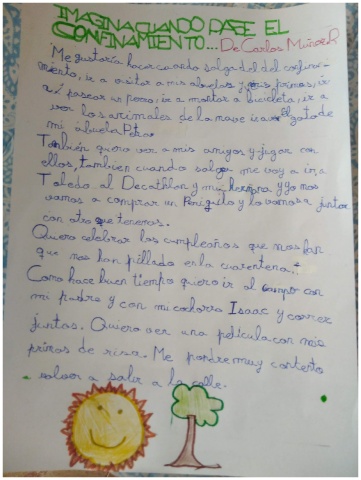 IMAGINA CUANDO PASE EL
CONFINAMIENTO... De Carlos Muñoz
Me gustaría hacer cuando salga del del confina-
miento, ir a visitar a mis abuelos y mis primos, ir
a pasear un perro, ir a montar a bicicleta, ir a
ver los animales de la nave ir a ver el gato de
mi abuela Petra.
También quiero ver a mis amigos y jugar con
ellos, tambien cuando salga me voy a ir a
Toledo al Decathlon y mi hermana y yo nos
vamos a comprar un Periquito y lo vamos a juntar
con otro que tenemos.
Quiero celebrar los cumpleaños que nos han
que nos han pillado en la cuarentena.
Como hace buen tiempo quiero ir al campo con
mi padre y con mi Isaac y correr
juntos. Quiero ver una película con mis
primos de risa. Me pondre muy contento
volver a salir a la calle.